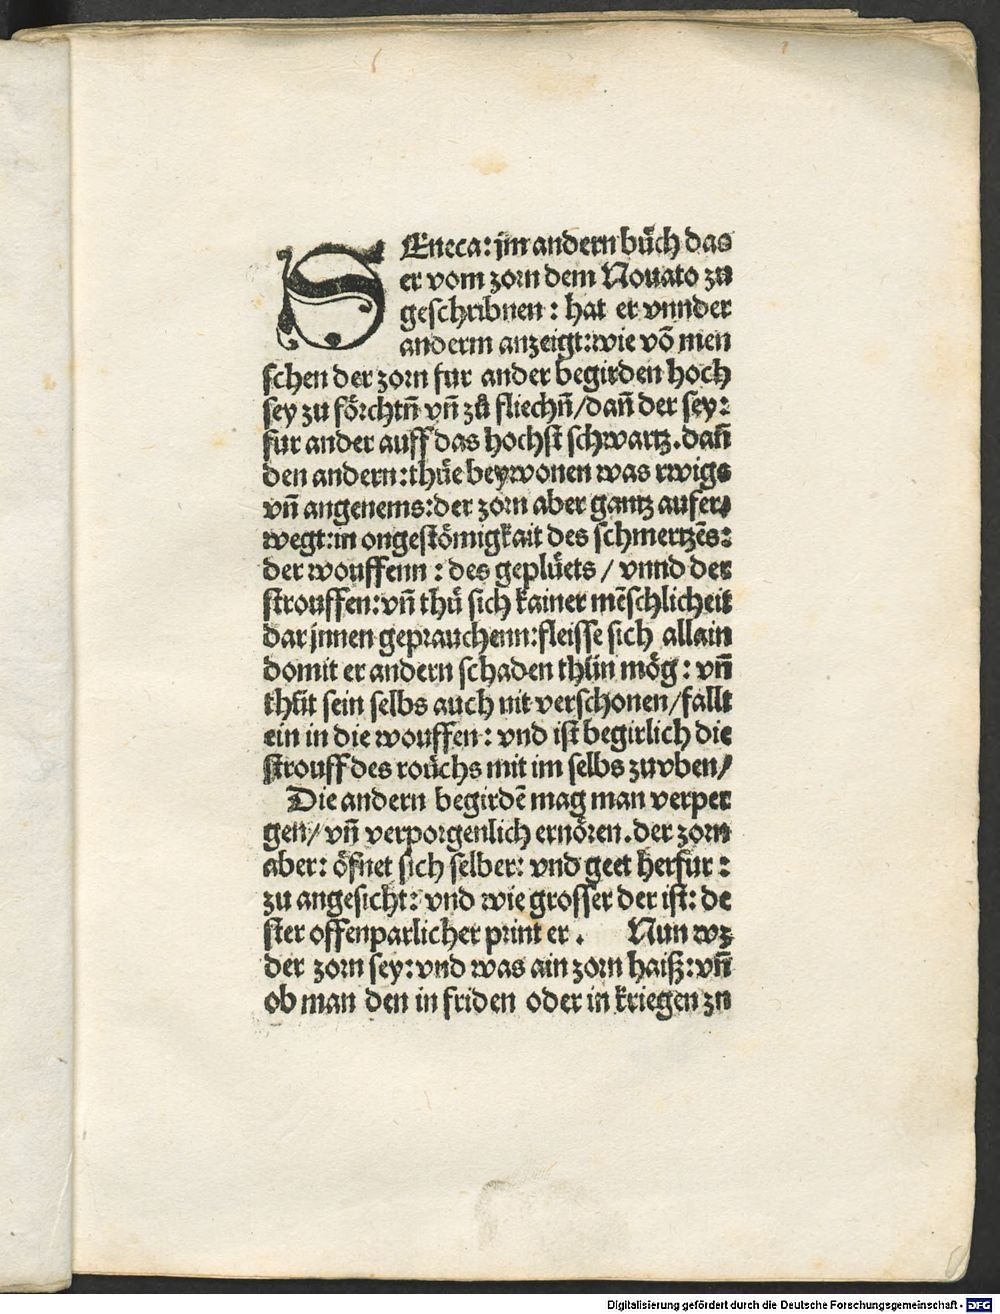 SEneca: jm andern bůch das
er vom zorn dem Nouato zu
geschribnen: hat er vnnder
anderm anzeigt: wie võ men
schen der zorn fur ander begirden hoch
sey zu förchtñ vñ zů fliechñ/ dañ der sey:
fur ander auff das hochst schwartz. dañ
den andern: thüe beywonen was rwigs
vñ angenems: der zorn aber gantz aufer,
wegt: in ongestömigkait des schmertzẽs:
der wouffenn: des geplüets/ vnnd der
strouffen: vñ thů sich kainer mẽschlicheit
dar jnnen geprauchenn: fleisse sich allain
domit er andern schaden thün mög: vñ
thüt sein selbs auch nit verschonen/ fallt
ein in die wouffen: vnd ist begirlich die
strouff des roüchs mit im selbs zuvben/
Die andern begirdẽ mag man verper
gen/ vñ verporgenlich ernören. der zorn
aber: öfnet sich selber: vnd geet herfur:
zu angesicht: vnd wie grosser der ist: de
ster offenparlicher print er. Nun wz
der zorn sey: vnd was ain zorn haiß: vñ
ob man den in friden oder in kriegen zu
Digitalisierung gefördert durch die Deutsche Forschungsgemeinschaft - DFG